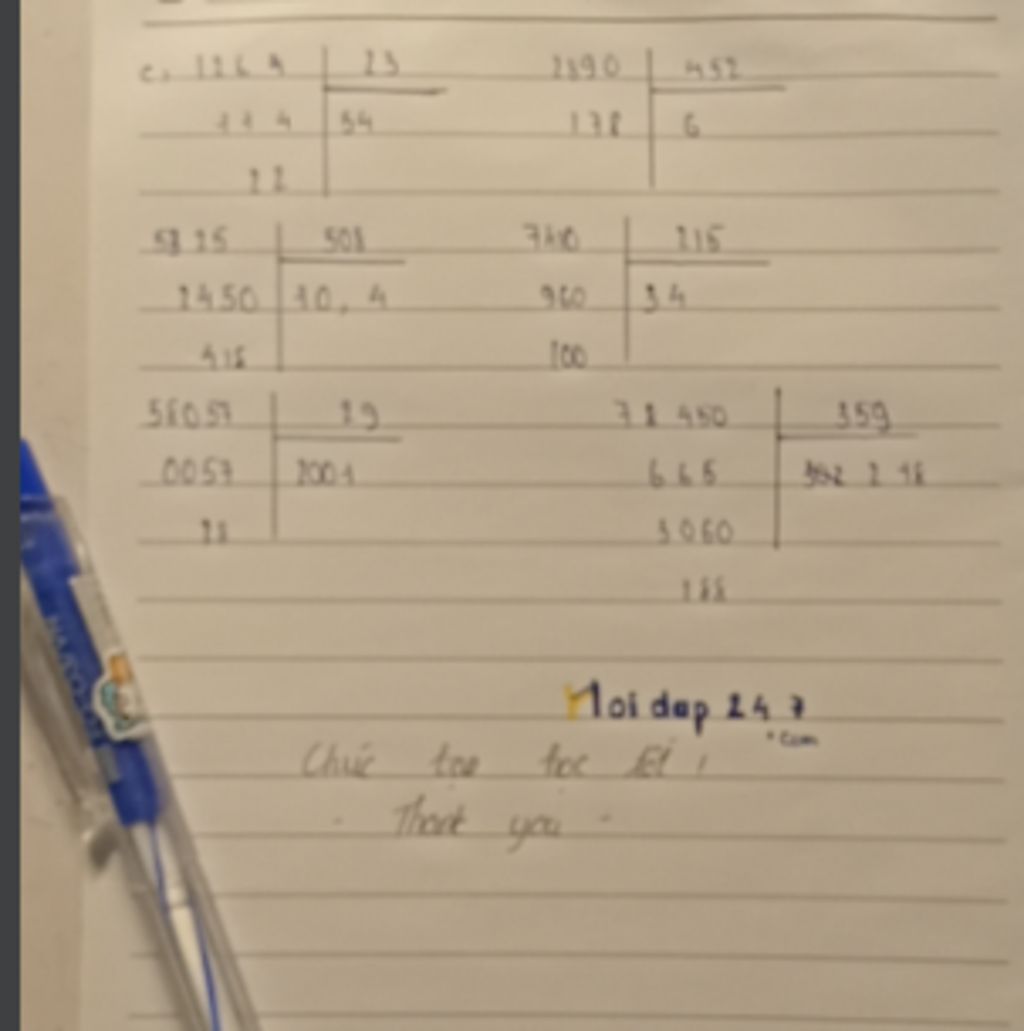 c, 1264 23 2890 452
114 54 178 6
22
5325 508 7410 215
2450 10, 4 960 34
418 100
58057 29 78 450 359
0057 2001 665 2 18
28 3060
188
Moi dap 247
.com
Chúc học tốt !
- Thank you -